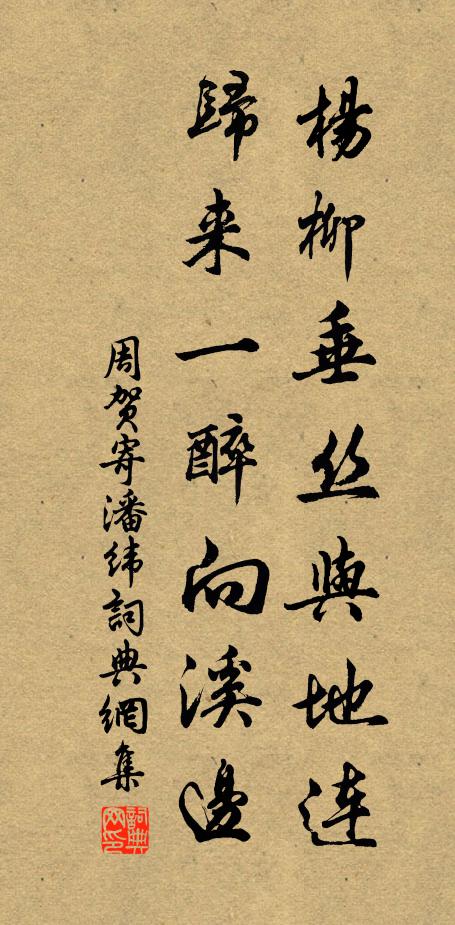 楊柳垂丝與地连
歸来一醉向溪邊
周贺寄潘纬詞典網集
詞典网印